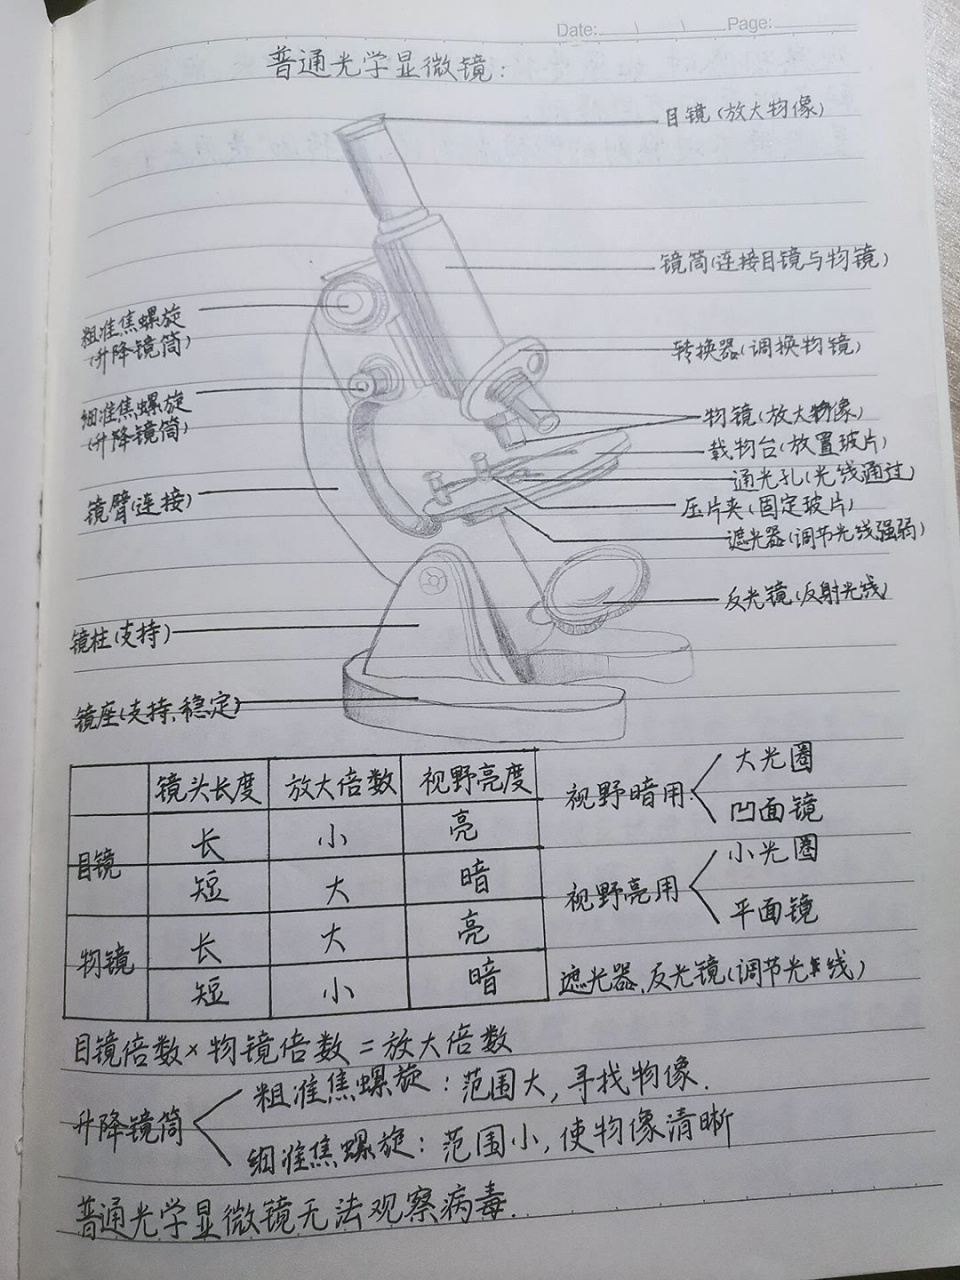 Date: \ \ Page:
普通光学显微镜:
目镜(放大物像)
镜筒(连接目镜与物镜)
粗准焦螺旋
(升降镜筒)
转换器(调换物镜)
细准焦螺旋
(升降镜筒)
物镜(放大物像)
载物台(放置玻片)
通光孔(光线通过)
镜臂(连接)
压片夹(固定玻片)
遮光器(调节光线强弱)
反光镜(反射光线)
镜柱(支持)
镜座(支持、稳定)
镜头长度 放大倍数 视野亮度
目镜 长 小 亮
短 大 暗
物镜 长 大 亮
短 小 暗
视野暗用: 大光圈
凹面镜
视野亮用 小光圈
平面镜
遮光器、反光镜(调节光线)
目镜倍数×物镜倍数=放大倍数
升降镜筒 粗准焦螺旋:范围大,寻找物像.
细准焦螺旋:范围小,使物像清晰
普通光学显微镜无法观察病毒.